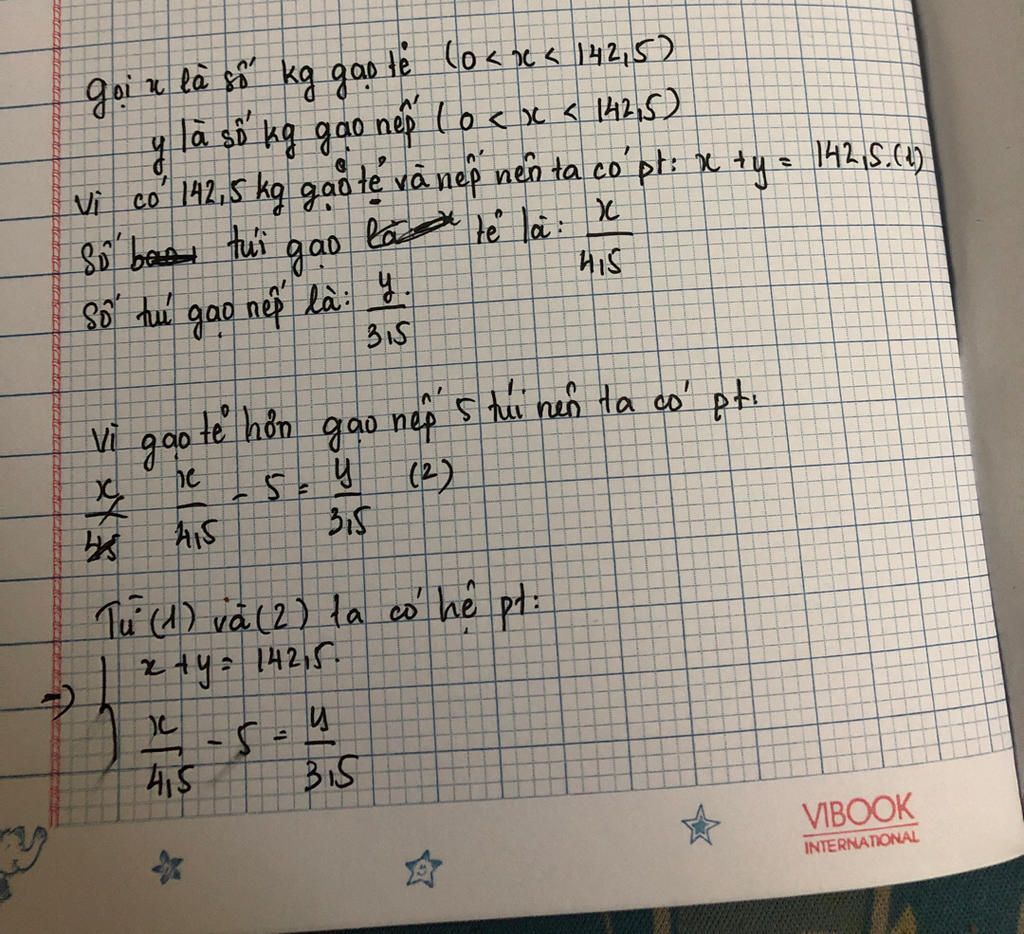 gọi x là số kg gạo tẻ (0 < x < 142,5)
y là số kg gạo nếp (0 < x < 142,5)
Vì có 142,5 kg gạo tẻ và nếp nên ta có pt: x + y = 142,5.(1)
Số bao túi gạo là x tẻ là: x/4,5
Số túi gạo nếp là: y/3,5
Vì gạo tẻ hơn gạo nếp 5 túi nên ta có pt:
x/45 x/4,5 - 5 = y/3,5 (2)
Từ (1) và (2) ta có hệ pt:
=> { x + y = 142,5.
x/4,5 - 5 = y/3,5
VIBOOK
INTERNATIONAL